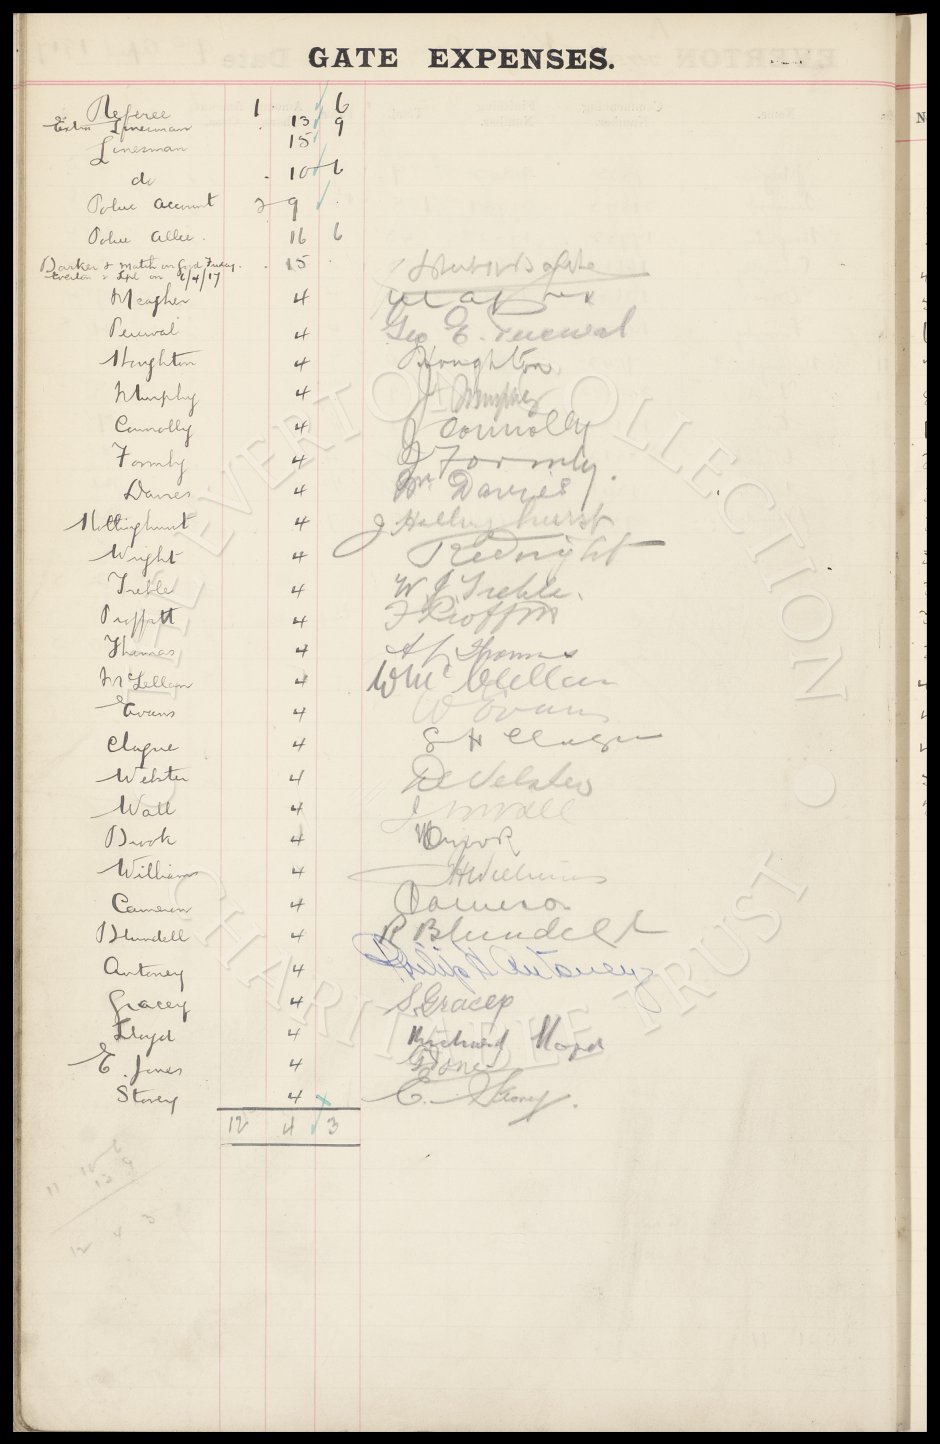 GATE EXPENSES.
Referee 1 . 6
Extra Linesman . 13 9
Linesman 15
do . 10 6
Police Account 2 9 .
Police Allce. 16 6
Barker & Match on Good Friday . 15
Everton v Lpl on 6/4/17
Meagher 4
Percival 4 Geo E. Percival
Houghton 4 Houghton
Murphy 4 J Murphy
Connolly 4 J Connolly
Formby 4 J Formby.
Davies 4 Wm Davies
Hollinghurst 4 J Hollinghurst
Wright 4 Wright
Treble 4 W. J. Treble.
Proffitt 4 F Proffitt
Thomas 4 A Thomas
McLellan 4 W McClellan
Evans 4 W Evans
Clague 4 S H Clague
Webster 4 Webster
Wall 4 J Wall
Brook 4 Brook
Williams 4 H Williams
Cameron 4 Cameron
Blundell 4 R Blundell
Antoney 4 Philip H Antoney
Gracey 4 S. Gracey
Lloyd 4 Richard Lloyd
E. Jones 4 E Jones
Storey 4 E. Storey.
12 4 3
12 4 3
THE EVERTON COLLECTION • CHARITABLE TRUST •